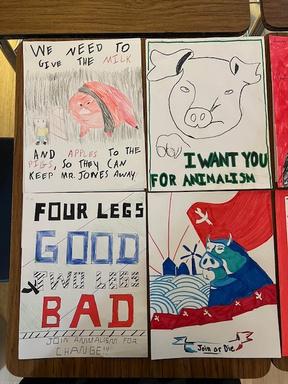 WE NEED TO
GIVE THE MILK
AND APPLES TO THE
PIGS, SO THEY CAN
KEEP MR. JONES AWAY.
I WANT YOU
FOR ANIMALISM
FOUR LEGS
GOOD
TWO LEGS
BAD
JOIN ANIMALISM FOR
CHANGE!!!
Join or Die